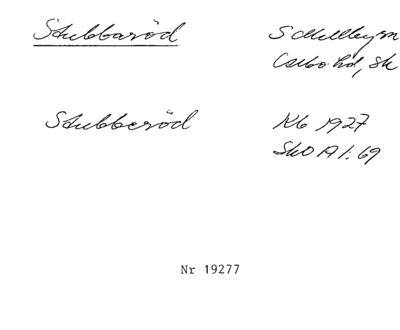 Stubbaröd
S Mellby sn
Albo hd, sk
Stubberöd
Kb 1927
SkO A 1:69
Nr 19277